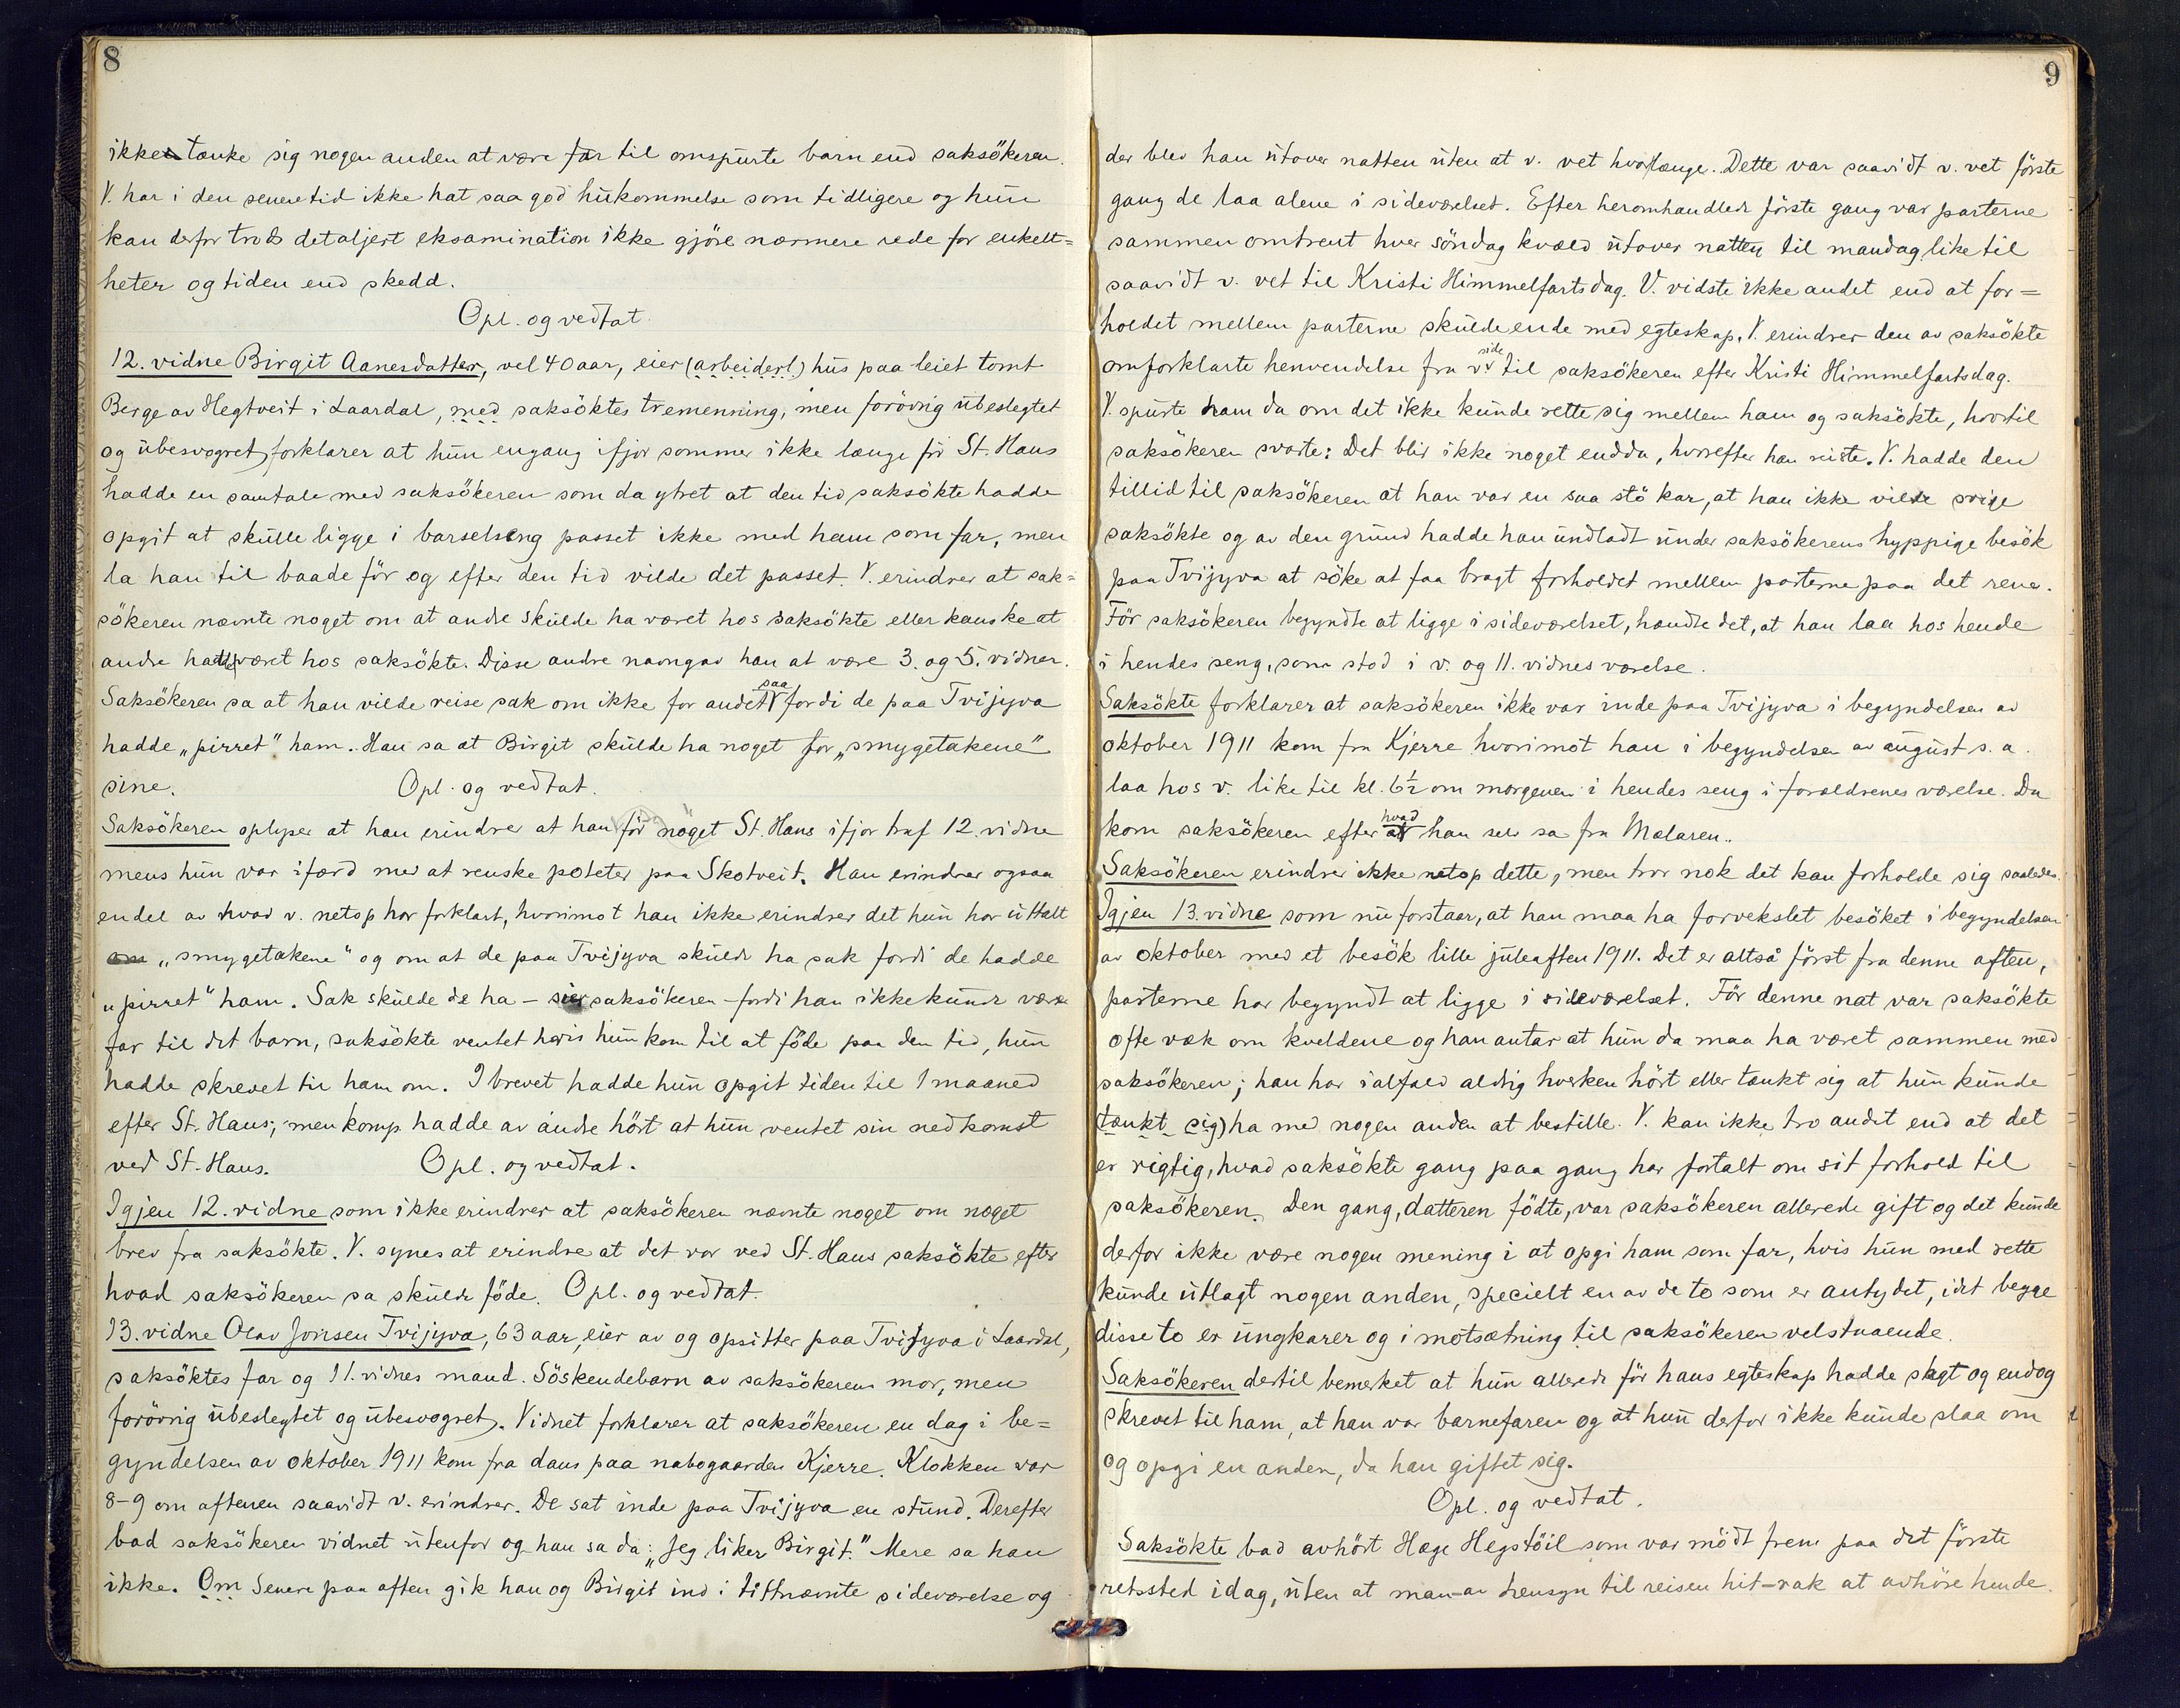 8
ikke tænke sig nogen anden at være far til omspurte barn end saksökeren.
V. har i den senere tid ikke hat saa god hukommelse som tidligere og hun
kan derfor trods detaljert eksamination ikke gjöre nærmere rede for enkelt=
heter og tiden end skedd.
Opl. og vedtat.
12. vidne Birgit Aanesdatter, vel 40 aar, eier (arbeiderl) hus paa leiet tomt
Berge av Hegtveit i Laardal, med saksöktes tremenning, men forövrig ubeslegtet
og ubesvogret, forklarer at hun engang ifjor sommer ikke længe för St. Hans
hadde en samtale med saksökeren som da ytret at den tid saksökte hadde
opgit at skulle ligge i barselseng passet ikke med ham som far, men
la han til baade för og efter den tid vilde det passet. V. erindrer at sak=
sökeren nævnte noget om at andre skulde ha været hos saksökte eller kanske at
andre hadde været hos saksökte. Disse andre navngav han at være 3. og 5. vidner.
Saksökeren sa at han vilde reise sak om ikke for andet saa fordi de paa Tvijyva
hadde „pirret" ham. Han sa at Birgit skulde ha noget for „smygetakene"
sine. Opl. og vedtat.
Saksökeren oplyser at han erindrer at han för noget St. Hans ifjor traf 12. vidne
mens hun var ifærd med at renske poteter paa Skotveit. Han erindrer ogsaa
endel av hvad v. netop har forklart, hvorimot han ikke erindrer det hun har uttalt
om „smygetakene" og om at de paa Tvijyva skulde ha sak fordi de hadde
„pirret" ham. Sak skulde de ha - sier saksökeren - fordi han ikke kunde være
far til det barn, saksökte ventet hvis hun kom til at föde paa den tid, hun
hadde skrevet til ham om. I brevet hadde hun opgit tiden til 1 maaned
efter St. Hans; men komp. hadde av andre hört at hun ventet sin nedkomst
ved St. Hans. Opl. og vedtat.
Igjen 12. vidne som ikke erindrer at saksökeren nævnte noget om noget
brev fra saksökte. V. synes at erindre at det var ved St. Hans saksökte efter
hvad saksökeren sa skulde föde. Opl. og vedtat.
13. vidne Olav Jonsen Tvijyva, 63 aar, eier av og opsitter paa Tvijyva i Laardal,
saksöktes far og 11. vidnes mand. Söskendebarn av saksökerens mor, men
forövrig ubeslegtet og ubesvogret. Vidnet forklarer at saksökeren en dag i be=
gyndelsen av oktober 1911 kom fra dans paa nabogaarden Kjerre. Klokken var
8-9 om aftenen saavidt v. erindrer. De sat inde paa Tvijyva en stund. Derefter
bad saksökeren vidnet utenfor og han sa da: „Jeg liker Birgit." Mere sa han
ikke. Om Senere paa aften gik han og Birgit ind i tiftnævnte sideværelse og
9
der blev han utover natten uten at v. vet hvor længe. Dette var saavidt v. vet förste
gang de laa alene i sideværelset. Efter heromhandlede förste gang var parterne
sammen omtrent hver söndag kvæld utover natten til mandag like til
saavidt v. vet til Kristi Himmelfartsdag. V. vidste ikke andet end at for=
holdet mellem parterne skulde ende med egteskap. V. erindrer den av saksökte
omforklarte henvendelse fra v.s side til saksökeren efter Kristi Himmelfartsdag.
V. spurte ham da om det ikke kunde rette sig mellem ham og saksökte, hvortil
saksökeren svarte: Det blir ikke noget endda, hvorefter han reiste. V. hadde den
tillid til saksökeren at han var en saa stö kar, at han ikke vilde svige
saksökte og av den grund hadde han undladt under saksökerens hyppige besök
paa Tvijyva at söke at faa bragt forholdet mellem parterne paa det rene.
För saksökeren begyndte at ligge i sideværelset, hændte det, at han laa hos hende
i hendes seng, som stod i v. og 11. vidnes værelse.
Saksökte forklarer at saksökeren ikke var inde paa Tvijyva i begyndelsen av
oktober 1911 kom fra Kjerre hvorimot han i begyndelsen av august s. a.
laa hos v. like til kl. 6½ om morgenen i hendes seng i forældrenes værelse. Da
kom saksökeren efter hvad han selv sa fra Mælaren.
Saksökeren erindrer ikke netop dette, men tror nok det kan forholde sig saaledes.
Igjen 13. vidne som nu forstaar, at han maa ha forvekslet besöket i begyndelsen
av oktober med et besök lille juleaften 1911. Det er altså först fra denne aften,
parterne har begyndt at ligge i sideværelset. För denne nat var saksökte
ofte væk om kveldene og han antar at hun da maa ha været sammen med
saksökeren; han har ialfald aldrig hverken hört eller tænkt sig at hun kunde
(tænkt sig) ha med nogen anden at bestille. V. kan ikke tro andet end at det
er rigtig, hvad saksökte gang paa gang har fortalt om sit forhold til
saksökeren. Den gang, datteren födte, var saksökeren allerede gift og det kunde
derfor ikke være nogen mening i at opgi ham som far, hvis hun med rette
kunde utlagt nogen anden, specielt en av de to som er antydet, idet begge
disse to er ungkarer og i motsætning til saksökeren velstaaende.
Saksökeren dertil bemerket at hun allerede för hans egteskap hadde sagt og endog
skrevet til ham, at han var barnefaren og at hun derfor ikke kunde slaa om
og opgi en anden, da han giftet sig.
Opl. og vedtat.
Saksökte bad avhört Hæge Hegstöil som var mödt frem paa det förste
retssted idag, uten at man av hensyn til reisen hit rak at avhöre hende.